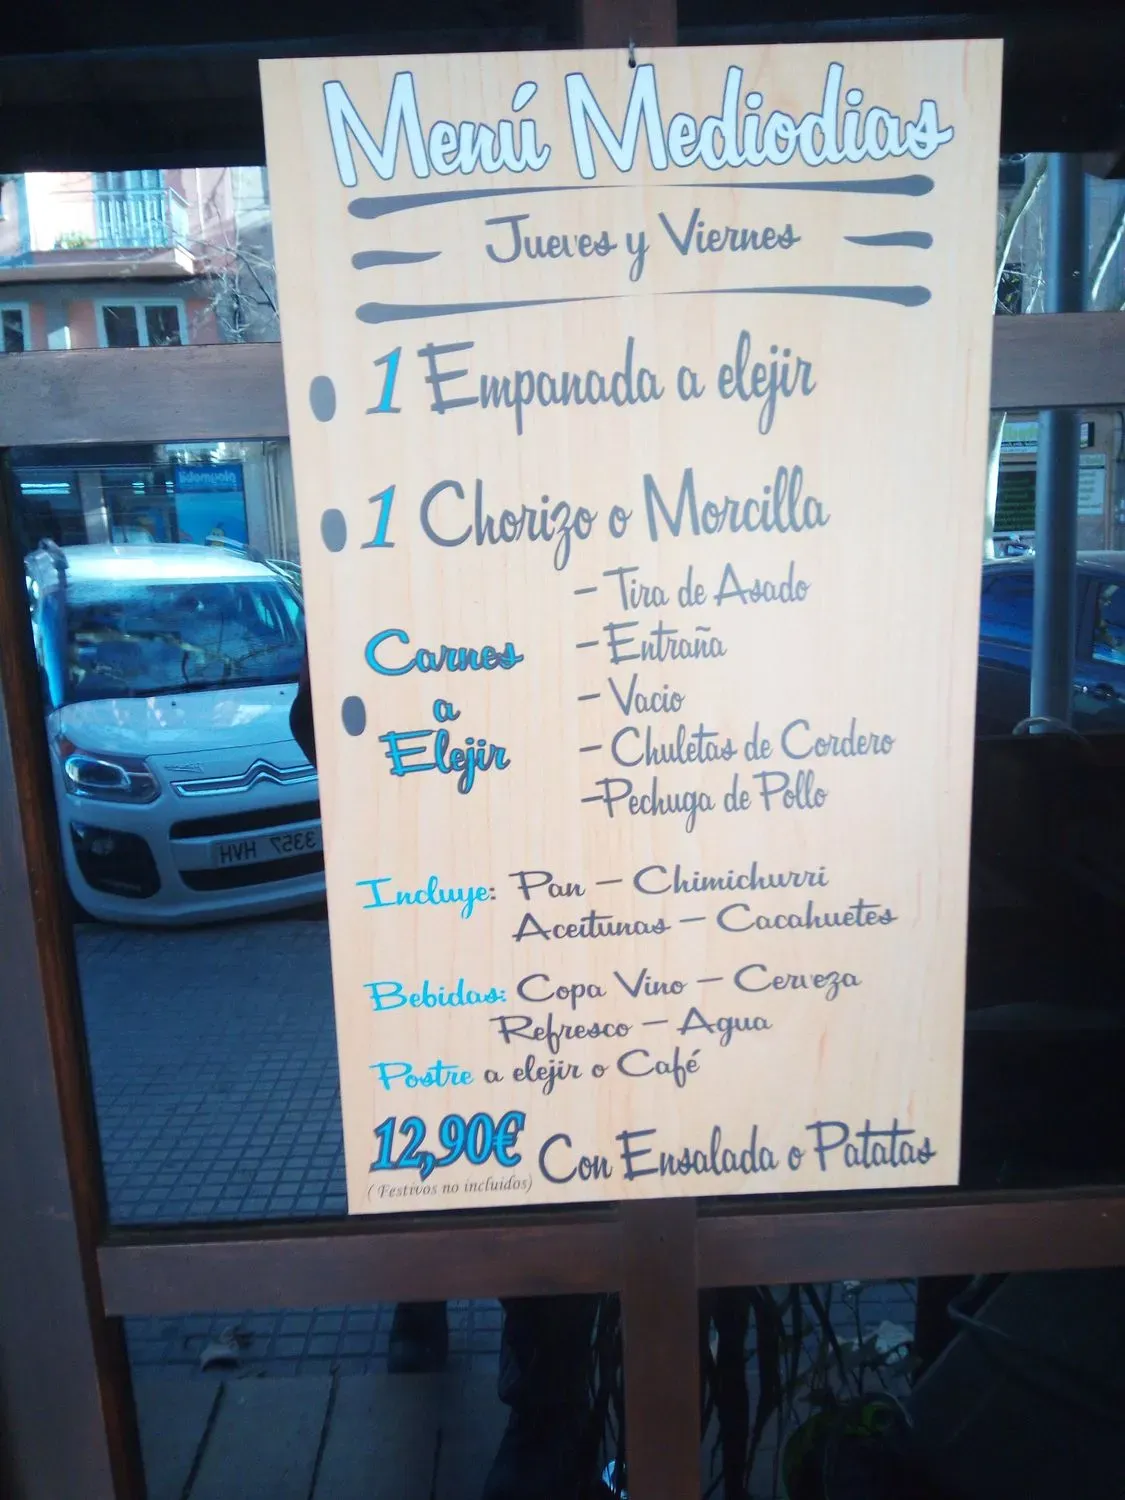 Menú Mediodias
Jueves y Viernes
1 Empanada a elejir
1 Chorizo o Morcilla
Carnes
a
Elejir
- Tira de Asado
- Entraña
- Vacio
- Chuletas de Cordero
-Pechuga de Pollo
Incluye: Pan - Chimichurri
Aceitunas - Cacahuetes
Bebidas: Copa Vino - Cerveza
Refresco - Agua
Postre a elejir o Café
12,90€ Con Ensalada o Patatas
(Festivos no incluidos)
3357 HVH